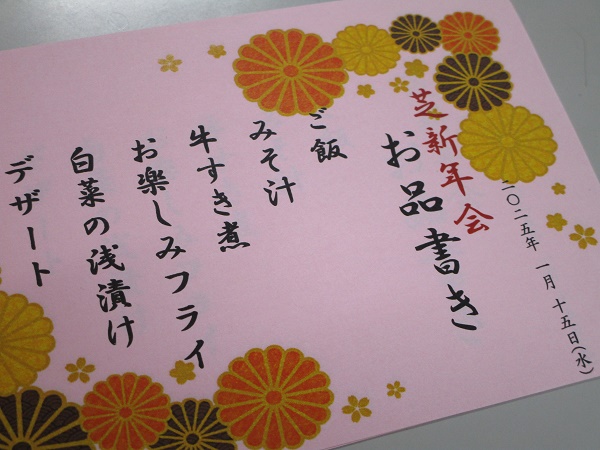 二〇二五年 一月 十五日(水)
芝新年会
お品書き
ご飯
みそ汁
牛すき煮
お楽しみフライ
白菜の浅漬け
デザート